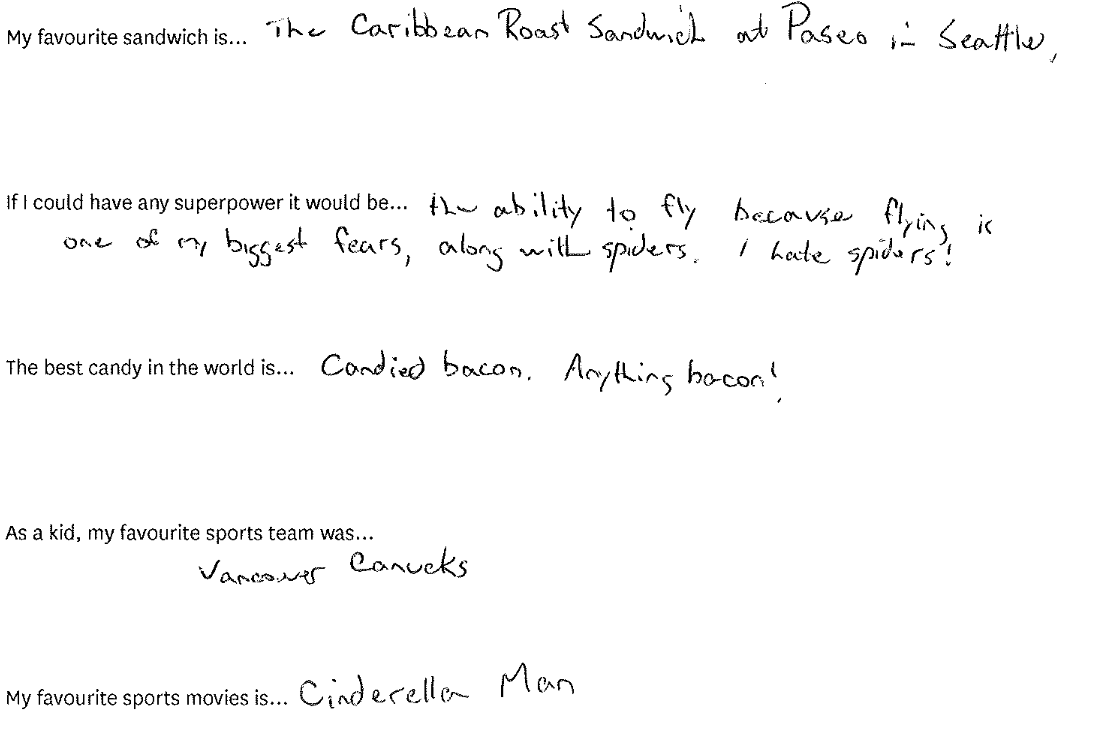 My favourite sandwich is... The Caribbean Roast Sandwich at Paseo in Seattle,
If I could have any superpower it would be... the ability to fly because flying is
one of my biggest fears, along with spiders. I hate spiders!
The best candy in the world is... Candied bacon. Anything bacon!
As a kid, my favourite sports team was...
Vancouver Canucks
My favourite sports movies is... Cinderella Man